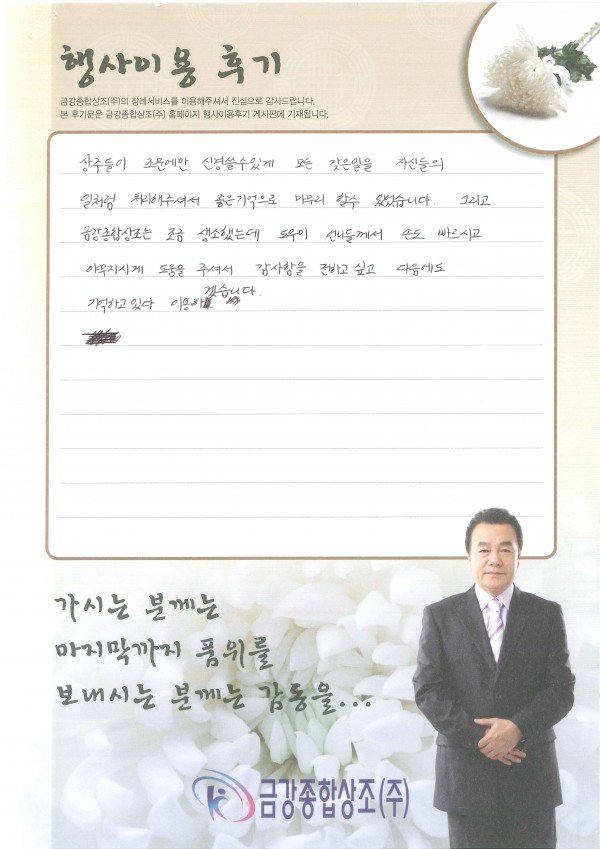 행사이용 후기
금강종합상조(주)의 장례서비스를 이용해주셔서 진심으로 감사드립니다.
본 후기문은 금강종합상조(주) 홈페이지 행사이용후기 게시판에 기재됩니다.
상주들이 조문에만 신경쓸수있게 모든 궂은일을 자신들의
일처럼 처리해주셔서 좋은기억으로 마무리 할수 있었습니다. 그리고
금강종합상조는 조금 생소했는데 도우미 언니들께서 손도 빠르시고
야무지시게 도움을 주셔서 감사함을 전하고 싶고 다음에도
기억하고 있다 이용하겠습니다.
가시는 분께는
마지막까지 품위를
보내시는 분께는 감동을...
금강종합상조(주)